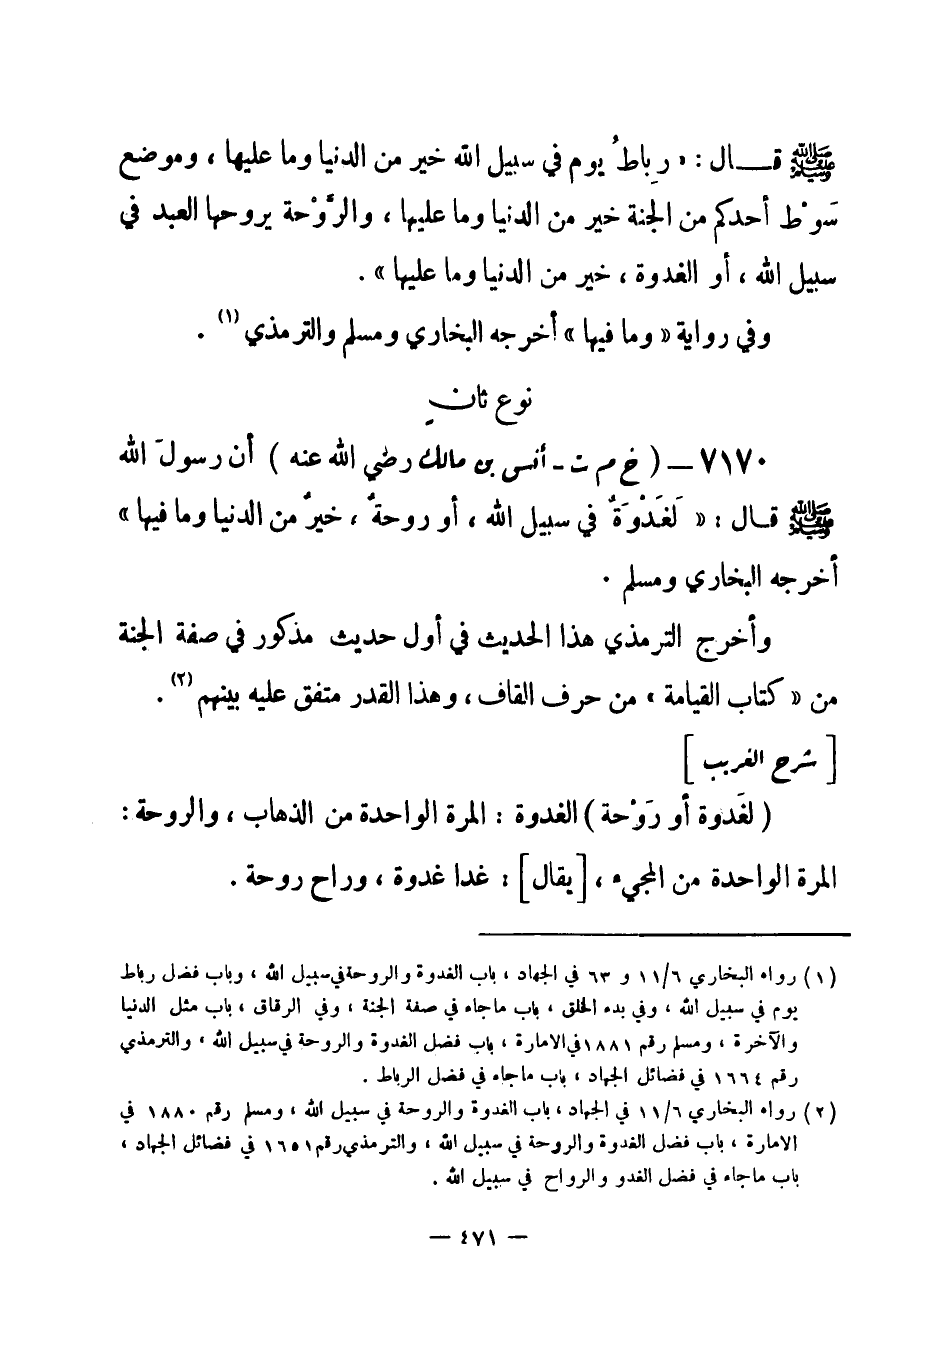 ﷺ قـــال : « رِباطُ يوم في سبيل الله خير من الدنيا وما عليها ، وموضع
سَوْط أحدكم من الجنة خير من الدنيا وما عليها ، والرَّوْحة يروحها العبد في
سبيل الله ، أو الغدوة ، خير من الدنيا وما عليها » .
وفي رواية « وما فيها » أخرجه البخاري ومسلم والترمذي (١) .
نوع ثانٍ
٧١٧٠ – ( خ م ت - أنس بن مالك رضي الله عنه ) أن رسولَ الله
ﷺ قـال : « لَغَدْوَةٌ في سبيل الله ، أو روحةٌ ، خيرٌ من الدنيا وما فيها »
أخرجه البخاري ومسلم .
وأخرج الترمذي هذا الحديث في أول حديث مذكور في صفة الجنة
من « كتاب القيامة » من حرف القاف ، وهذا القدر متفق عليه بينهم (٢) .
[ شرح الغريب ]
( لغَدوة أو رَوْحة ) الغدوة : المرة الواحدة من الذهاب ، والروحة :
المرة الواحدة من المجيء ، [يقال] : غدا غدوة ، وراح روحة .
(١) رواه البخاري ١١/٦ و ٦٣ في الجهاد ، باب الغدوة والروحة في سبيل الله ، وباب فضل رباط
يوم في سبيل الله ، وفي بدء الخلق ، باب ماجاء في صفة الجنة ، وفي الرقاق ، باب مثل الدنيا
والآخرة ، ومسلم رقم ١٨٨١ في الامارة ، باب فضل الغدوة والروحة في سبيل الله ، والترمذي
رقم ١٦٦٤ في فضائل الجهاد ، باب ماجاء في فضل الرباط .
(٢) رواه البخاري ١١/٦ في الجهاد ، باب الغدوة والروحة في سبيل الله ، ومسلم رقم ١٨٨٠ في
الامارة ، باب فضل الغدوة والروحة في سبيل الله ، والترمذي رقم ١٦٥١ في فضائل الجهاد ،
باب ماجاء في فضل الغدو والرواح في سبيل الله .
– ٤٧١ –